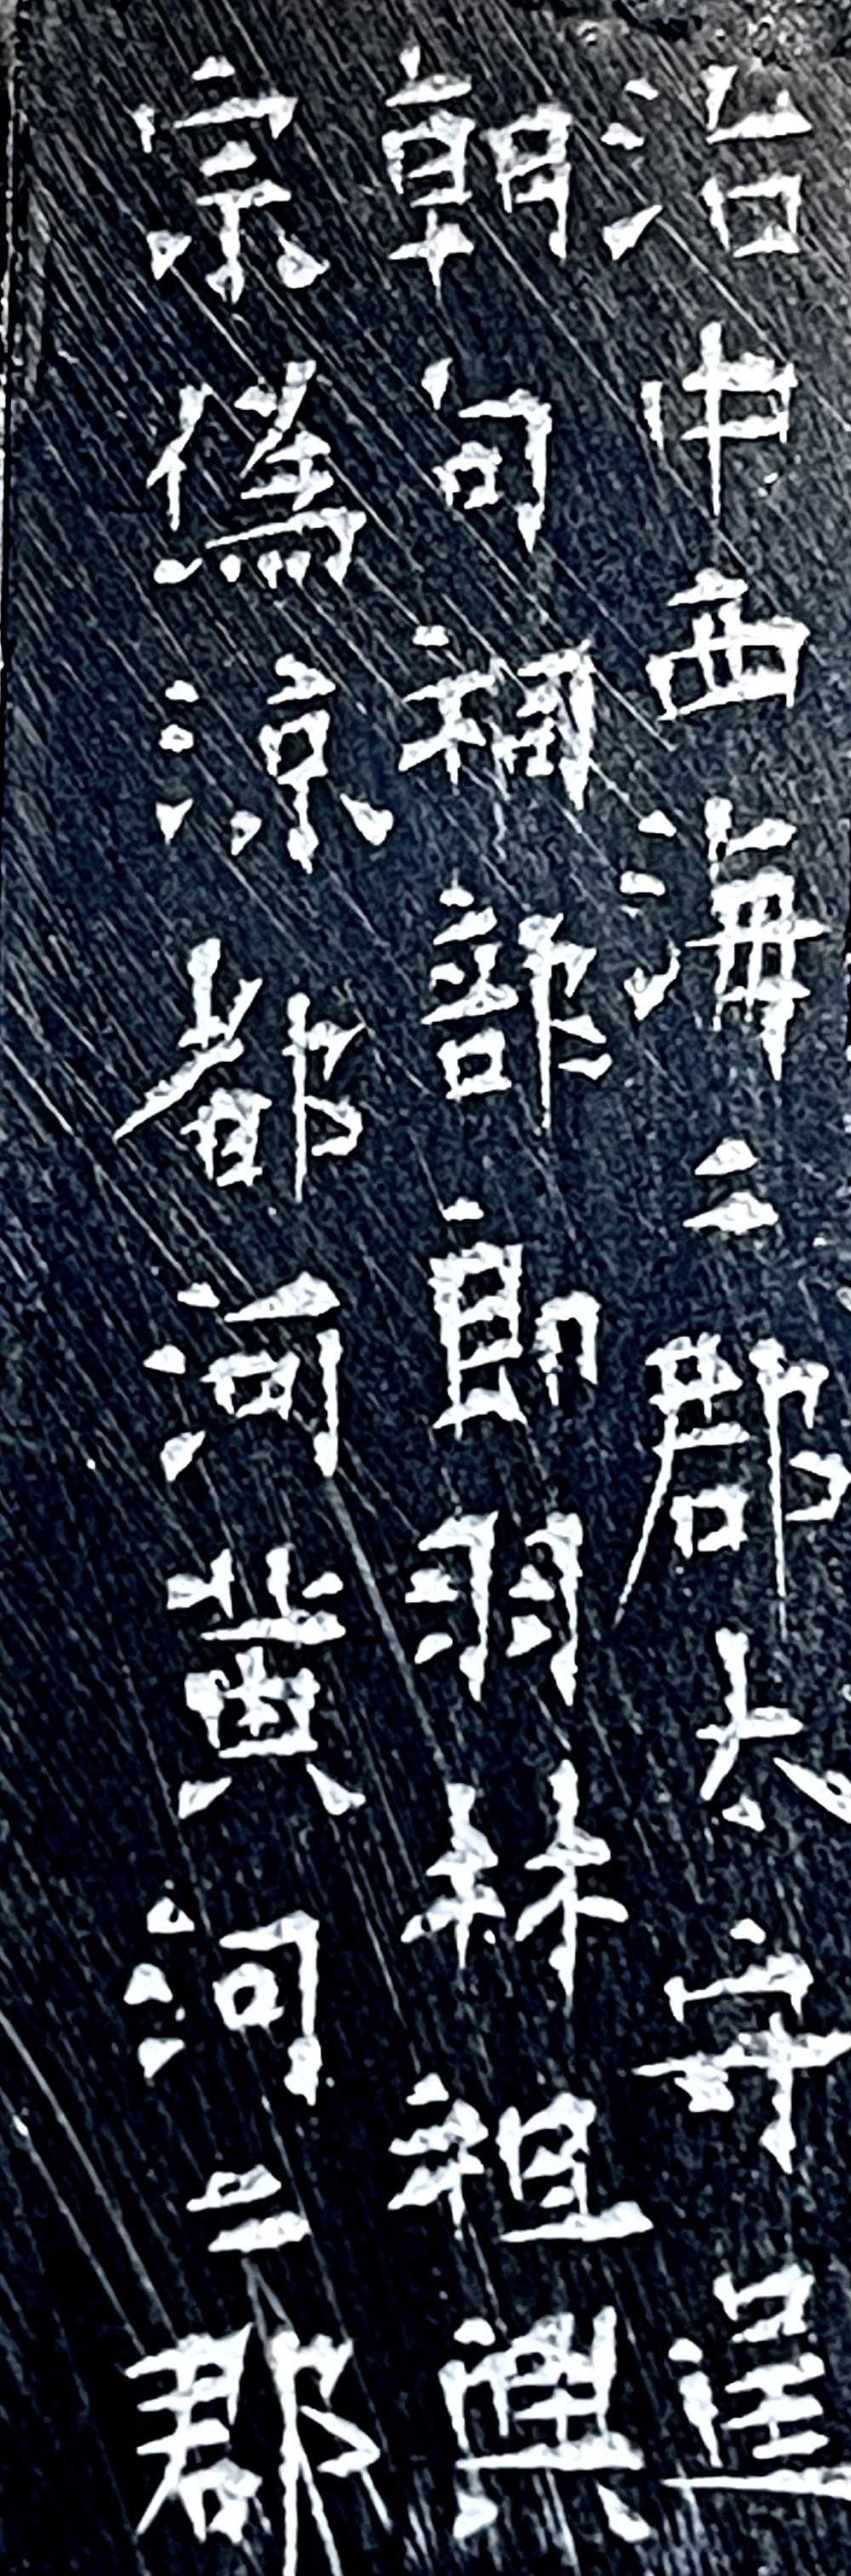 治中西海二郡太守逞
朝句祠部郎羽林祖興
宗偽涼都河黄河二郡